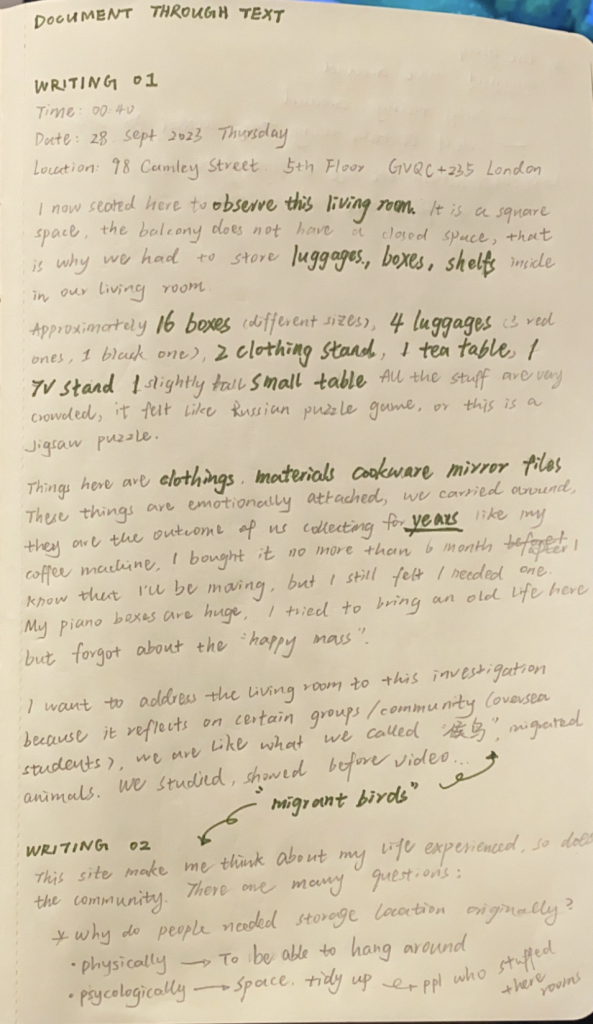 DOCUMENT THROUGH TEXT
WRITING 01
Time: 00:40
Date: 28 Sept 2023 Thursday
Location: 98 Camley Street 5th Floor GVQC+235 London
I now seated here to observe this living room. It is a square
space, the balcony does not have a closed space, that
is why we had to store luggages, boxes, shelfs inside
in our living room.
Approximately 16 boxes (different sizes), 4 luggages (3 red
ones, 1 black one), 2 clothing stand, 1 tea table, 1
TV stand 1 slightly tall small table All the stuff are very
crowded, it felt like Russian puzzle game, or this is a
Jigsaw puzzle.
Things here are clothings, materials cookware mirror files
These things are emotionally attached, we carried around,
they are the outcome of us collecting for years like my
coffee machine, I bought it no more than 6 month before after I
know that I'll be moving, but I still felt I needed one.
My piano boxes are huge, I tried to bring an old life here
but forgot about the "happy mass".
I want to address the living room to this investigation
because it reflects on certain groups/community (oversea
students), we are like what we called "候鸟", migrated
animals. We studied, showed before video...
"migrant birds"
WRITING 02
This site make me think about my life experienced, so does
the community. There are many questions:
* Why do people needed storage location originally?
• physically → To be able to hang around
• psycologically → space. tidy up ppl who stuffed
there rooms